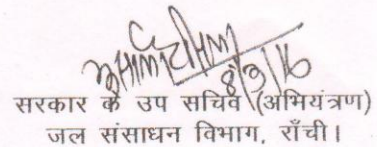 8/3/16
सरकार के उप सचिव (अभियंत्रण)
जल संसाधन विभाग, राँची।